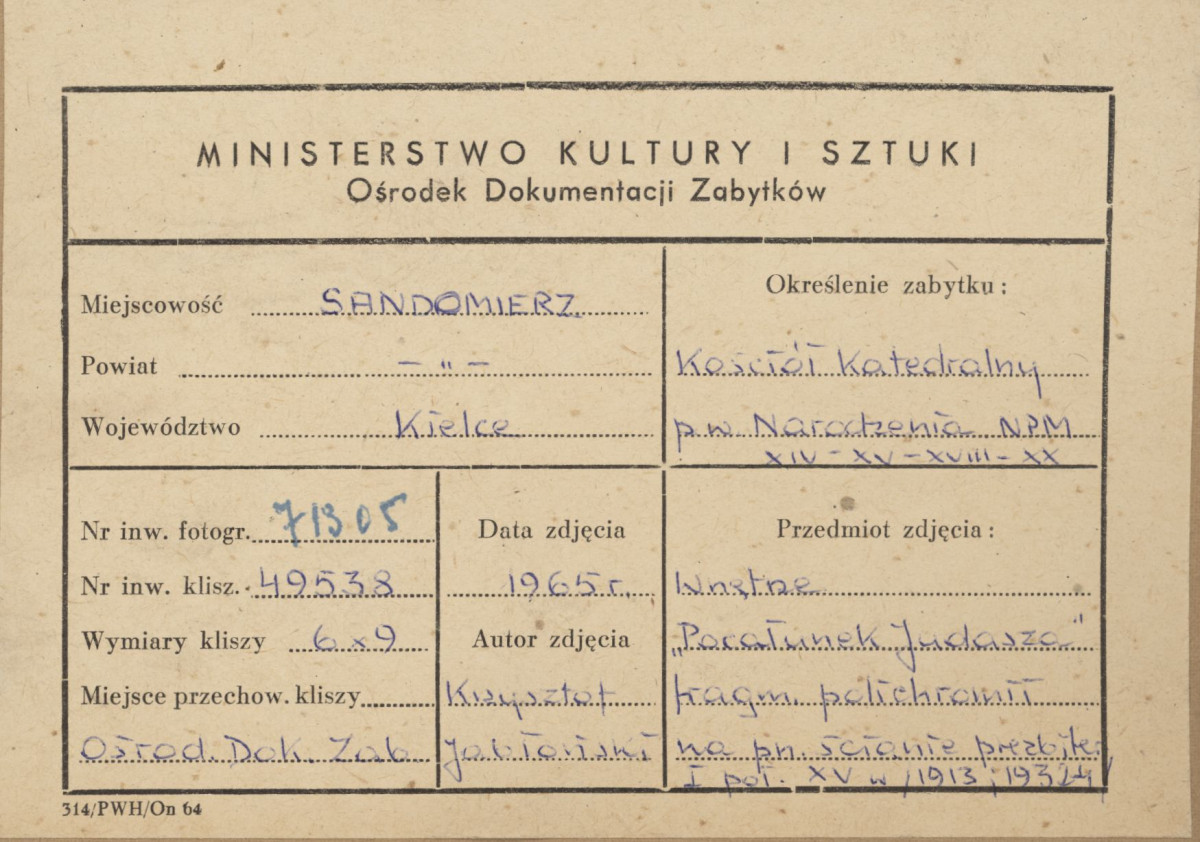 MINISTERSTWO KULTURY I SZTUKI
Ośrodek Dokumentacji Zabytków
Miejscowość SANDOMIERZ
Powiat — " —
Województwo Kielce
Określenie zabytku:
Kościół Katedralny
p.w. Narodzenia NPM
XIV - XV - XVIII - XX
Nr inw. fotogr. 71305
Nr inw. klisz. 49538
Wymiary kliszy 6x9
Miejsce przechow. kliszy
Ośrod. Dok. Zab
Data zdjęcia
1965 r.
Autor zdjęcia
Krzysztof
Jabłoński
Przedmiot zdjęcia:
Wnętrze
„Pocałunek Judasza"
fragm. polichromii
na pn. ścianie prezbiter.
I poł. XV w /1913, 1932
314/PWH/On 64